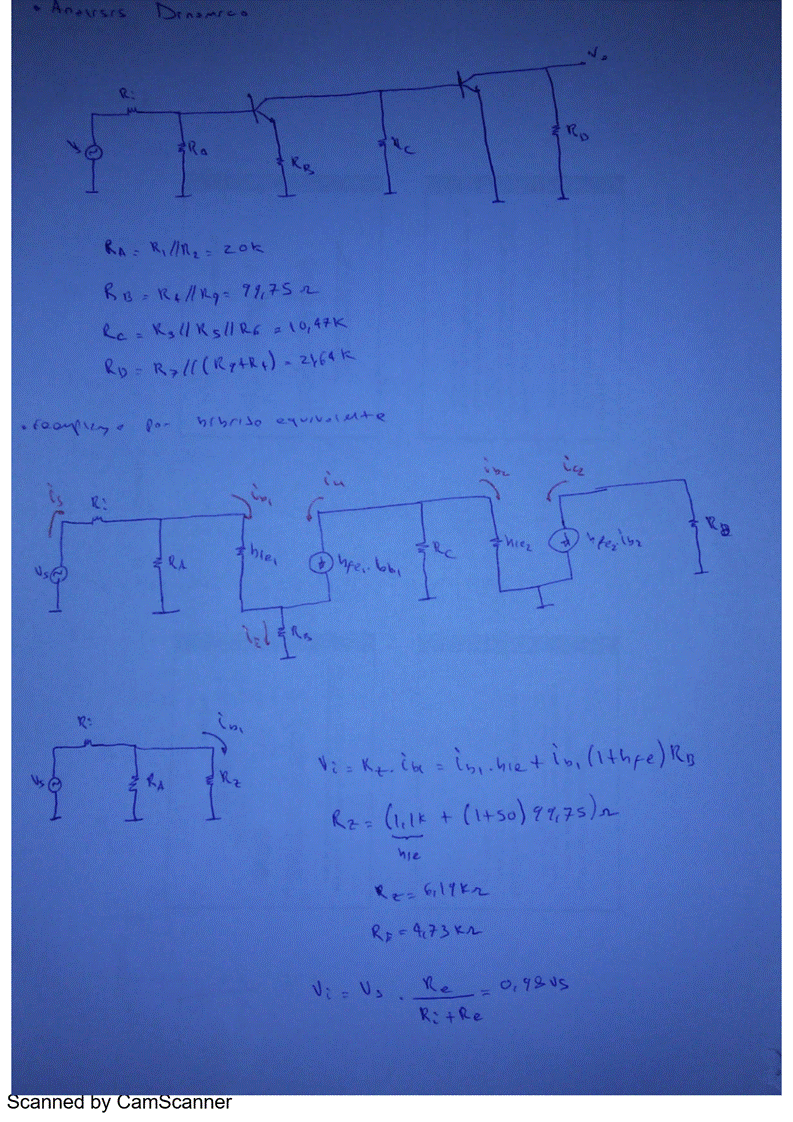 • Analisis Dinamico
Ri
Vo
Vs
RA
RB
RC
RD
RA = R1//R2 = 20K
RB = R4//R9 = 99,75 Ω
RC = R3//R5//R6 = 10,47K
RD = R7//(R8+R4) = 2,64K
• por hibrido equivalente
is
Ri
ib1
ib2
Vs
RA
hie1
hfe1.ib1
RC
hie2
hfe2.ib2
RB
Ri
ib1
Vs
RA
RZ
Vi = RZ.ib1 = ib1.hie + ib1(1+hfe)RB
RZ = (1,1K + (1+50)99,75)Ω
hie
RZ = 6,19KΩ
4,73KΩ
Vi = Vs . Re / Ri+Re = 0,98Vs
Scanned by CamScanner